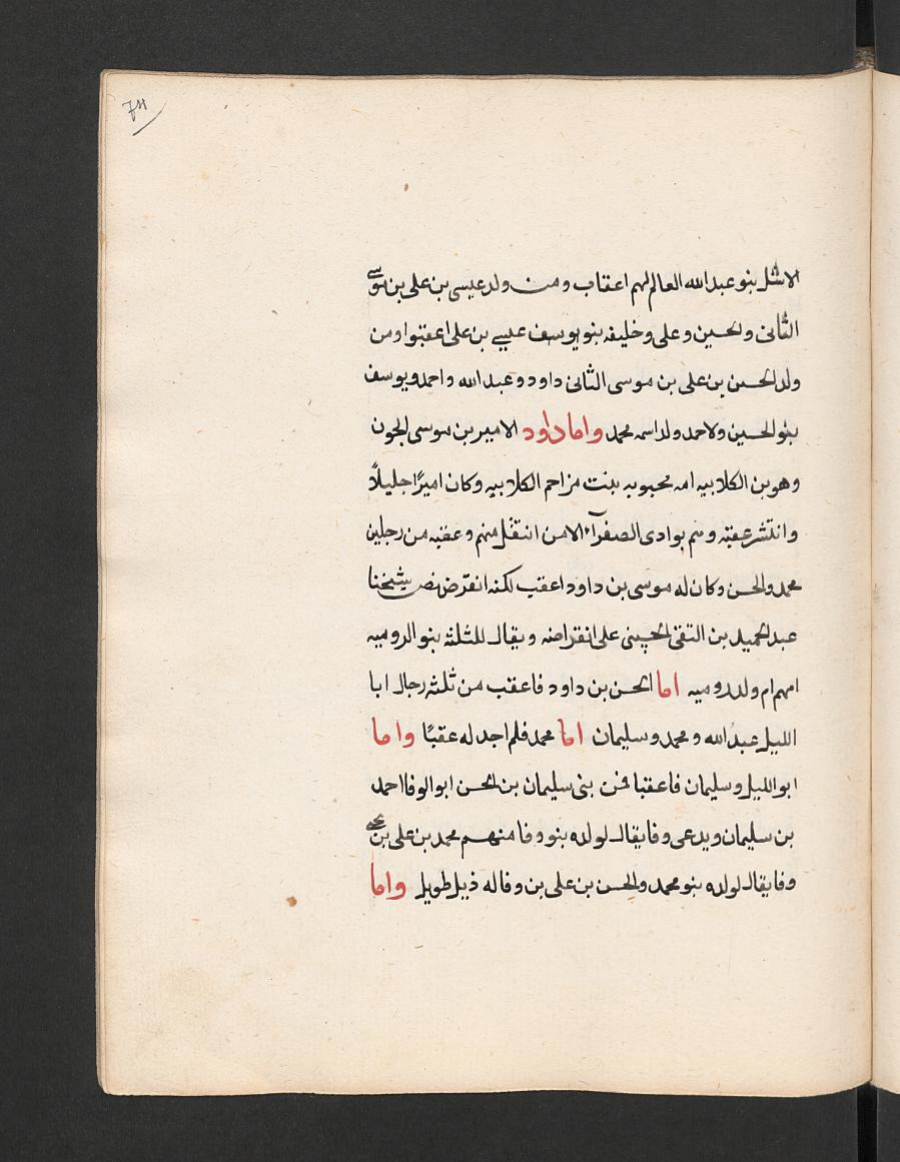 74
الاشل بنو عبدالله العالم لهم اعقاب ومن ولد عيسى بن على بن موسى
الثانى والحسين وعلى وخليفه بنو يوسف عيسى بن على اعقبوا ومن
ولد الحسن بن على بن موسى الثانى داود وعبد الله واحمد ويوسف
بنو الحسين ولاحمد ولد اسمه محمد واما داود الامير بن موسى الجون
وهو بن الكلابيه امه محبوبه بنت مزاحم الكلابيه وكان اميرًا جليلًا
وانتشر عقبه وهم بوادى الصفرآء الا من انتقل منهم وعقبه من رجلين
محمد والحسن وكان له موسى بن داود اعقب لكنه انقرض نص شيخنا
عبد الحميد بن التقى الحسينى على انقراضه ويقال للثلثة بنو الروميه
امهم ام ولد روميه اما الحسن بن داود فاعقب من ثلثة رجال ابا
الليل عبد الله ومحمد وسليمان اما محمد فلم اجد له عقبًا واما
ابو الليل وسليمان فاعقبا فمن بنى سليمان بن الحسن ابو الوفا احمد
بن سليمان ويدعى وفا يقال لولده بنو وفا منهم محمد بن على بن
وفا يقال لولده بنو محمد والحسن بن على بن وفا له ذيل طويل واما